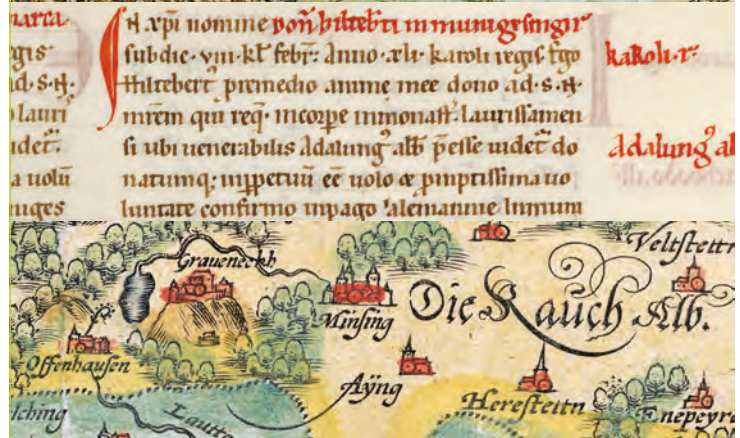 marca
gis
d. s. N.
lauri
idet.
a uolu
uiges
N xpi nomine don hiltebti in munigesingir
sub die. viii. kl febr. Anno. xli. karoli regis. Ego
Hiltebert p remedio anime mee dono ad. s. N.
mrem qui req. in corpe in monast. laurissamen
si ubi uenerabilis Adalung abb pesse uidet do
natumq; inppetuu ee uolo & pmptissima uo
luntate confirmo in pago alemannie In mum
karoli. r.
Adalung ab
Graueneckh
Veltstettn
Minsing
Die Rauch Alb.
Offenhausen
Aÿng
Herestettn
Enepeyre
lching
Lautte